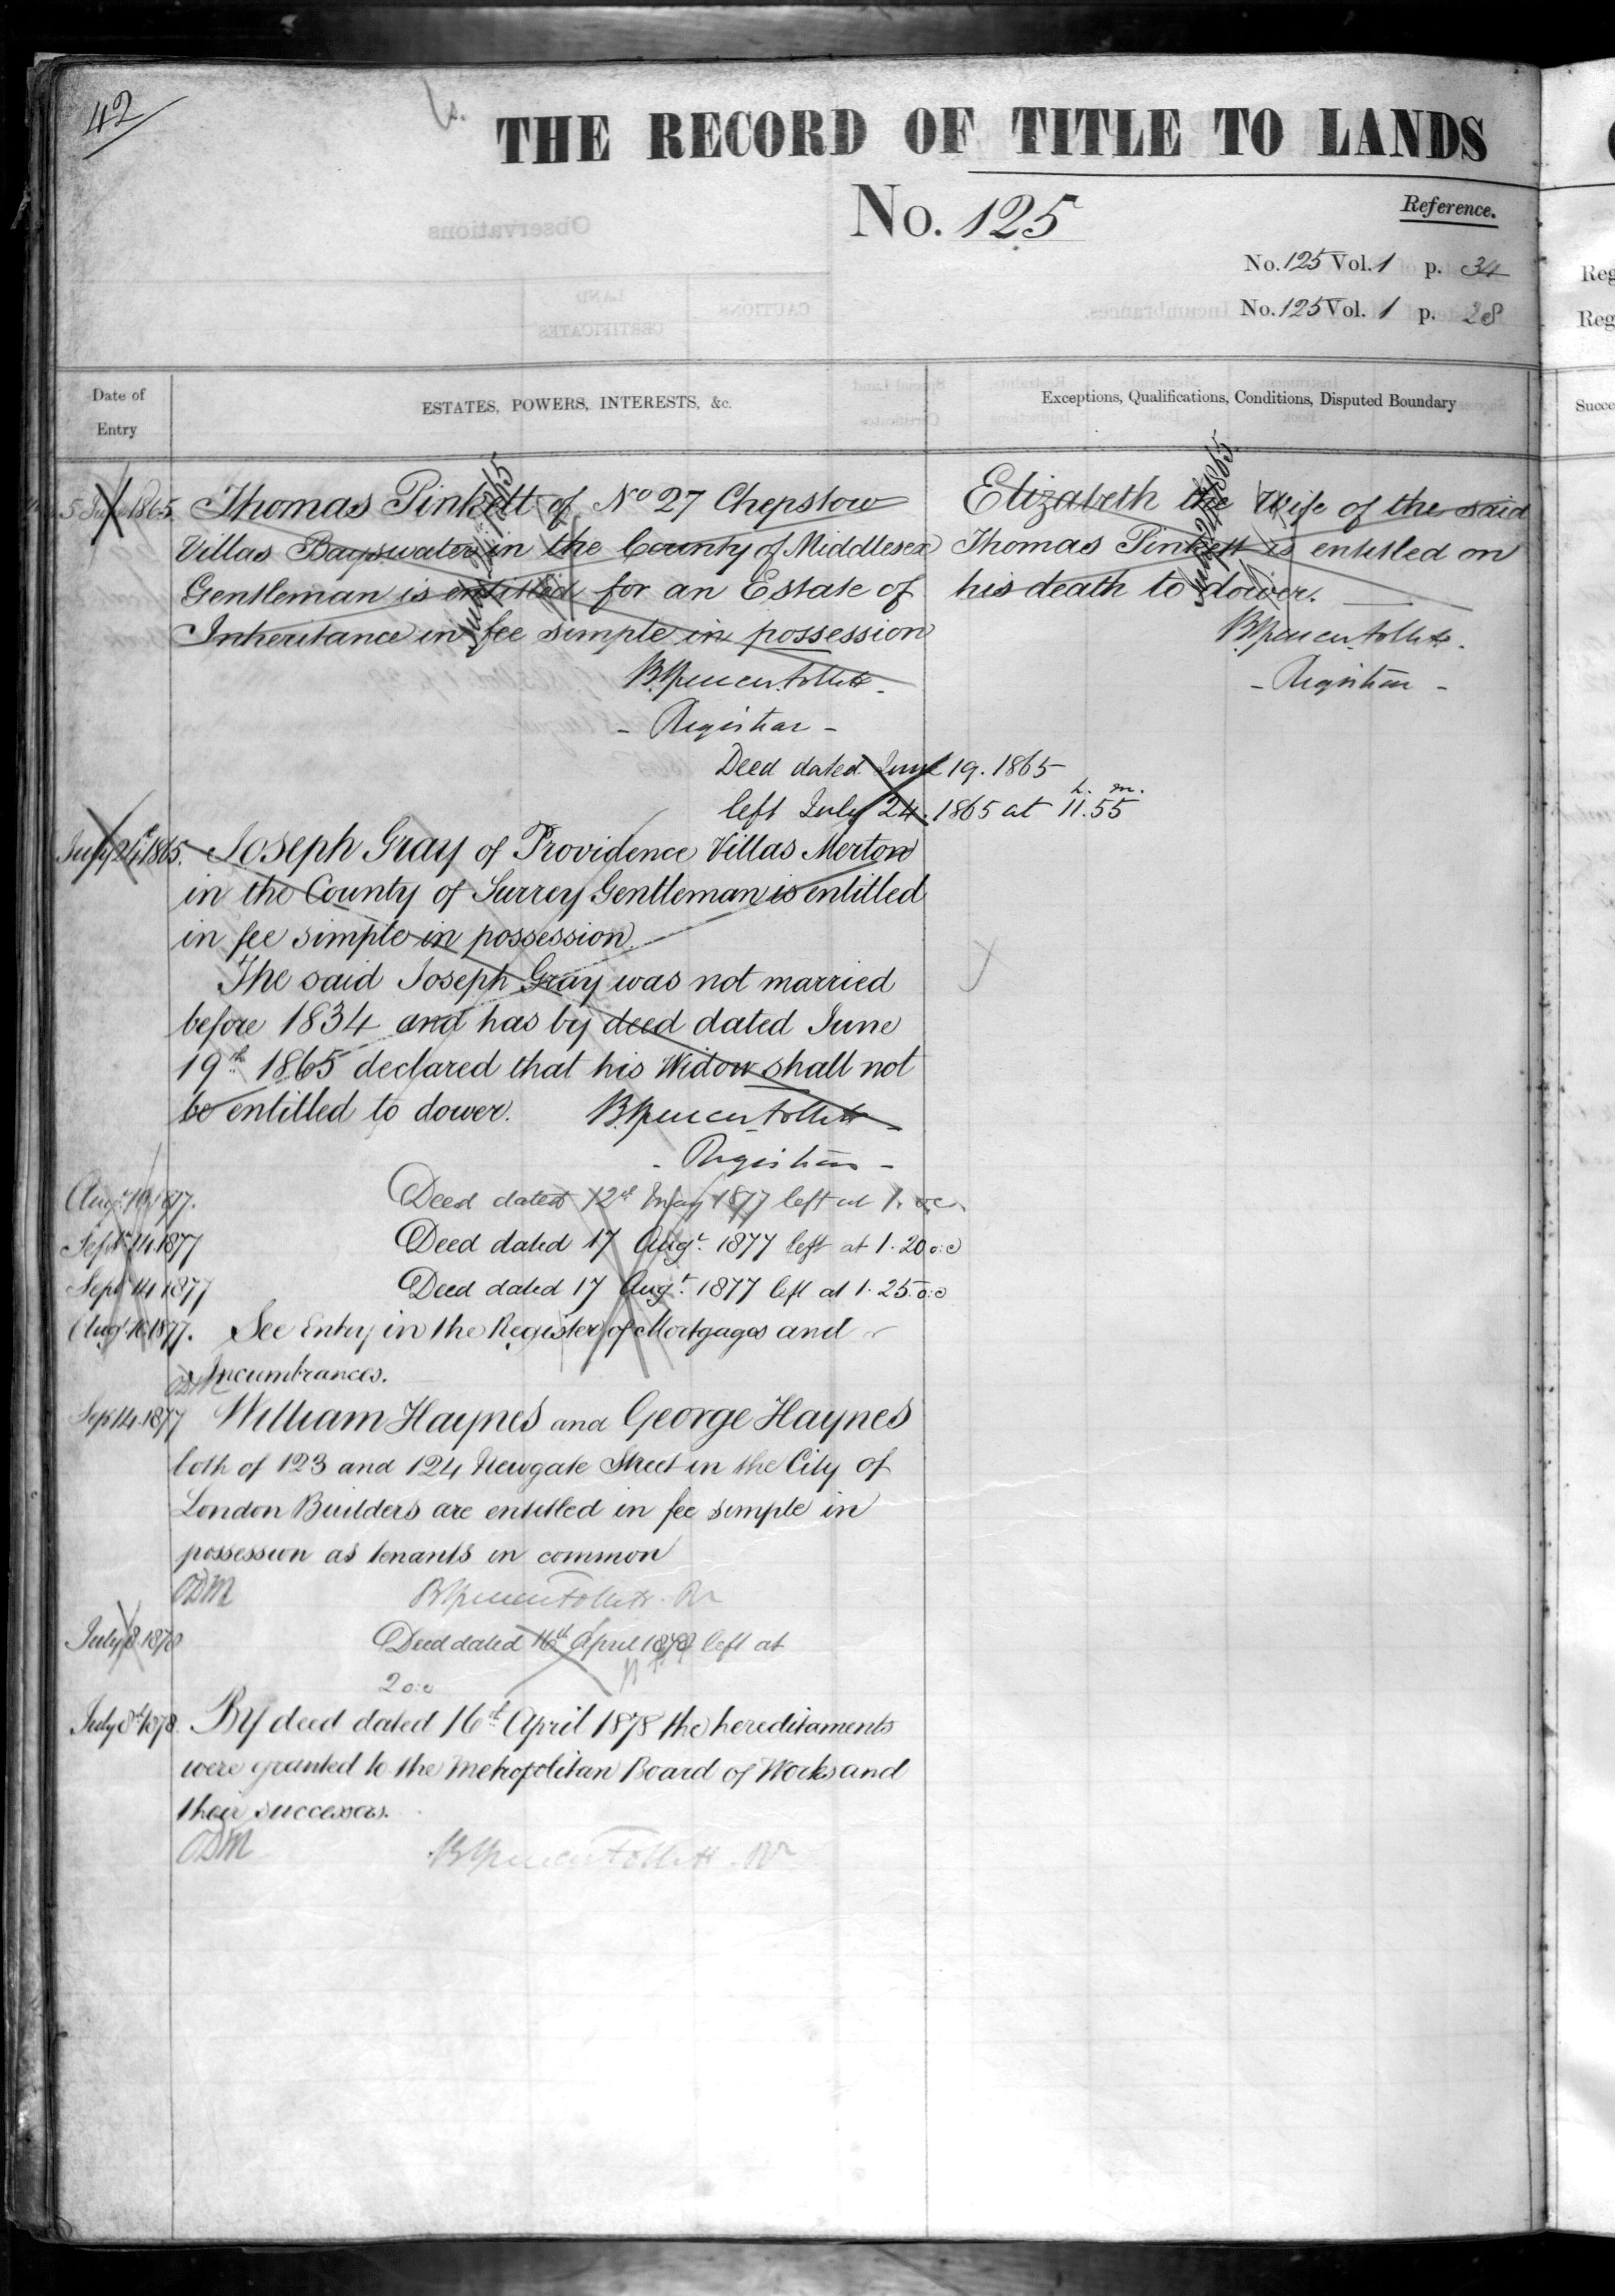 42
THE RECORD OF TITLE TO LANDS
No. 125
Reference.
No. 125 Vol. 1 p. 34
No. 125 Vol. 1 p. 28
Date of
Entry
ESTATES, POWERS, INTERESTS, &c.
Exceptions, Qualifications, Conditions, Disputed Boundary
5 June 1865. Thomas Pinkett of No 27 Chepstow
Villas Bayswater in the County of Middlesex
Gentleman is entitled for an Estate of
Inheritance in fee simple in possession
B Spencer Follett
- Registrar -
Elizabeth the Wife of the said
Thomas Pinkett is entitled on
his death to dower.
B Spencer Follett.
- Registrar -
July 24 1865
Deed dated June 19. 1865
left July 24. 1865 at 11h. 55m.
July 24th 1865. Joseph Gray of Providence Villas Merton
in the County of Surrey Gentleman is entitled
in fee simple in possession.
The said Joseph Gray was not married
before 1834 and has by deed dated June
19th 1865 declared that his Widow shall not
be entitled to dower. B Spencer Follett
- Registrar -
Deed dated 12th May 1877 left at 1. o.c.
Sept 14. 1877 Deed dated 17 Augt. 1877 left at 1. 20 o:c
Sept 14 1877 Deed dated 17 Augt. 1877 left at 1. 25. o:c
1877. See Entry in the Register of Mortgages and
Incumbrances.
ODM
Sep 14. 1877 William Haynes and George Haynes
both of 123 and 124 Newgate Street in the City of
London Builders are entitled in fee simple in
possession as tenants in common
ODM B Spencer Follett. Rr
July 8. 1878 Deed dated 16th April 1878 left at
2 o:c
July 8th 1878. By deed dated 16th April 1878 the hereditaments
were granted to the Metropolitan Board of Works and
their successors.
ODM B Spencer Follett. Rr
Reg
Reg
Succe